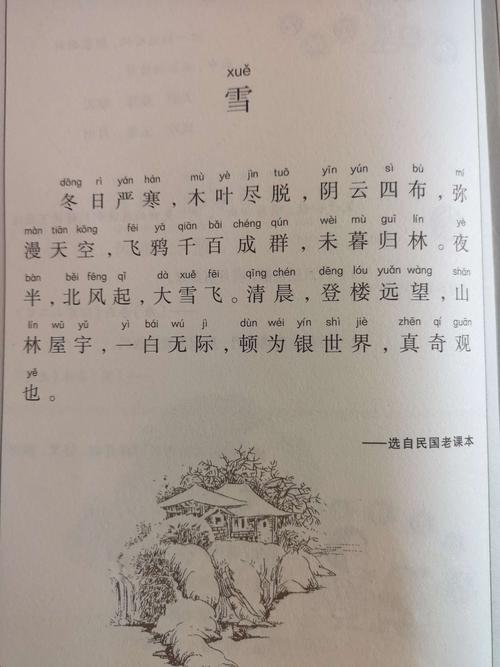 xuě
雪
dōng rì yán hán mù yè jìn tuō yīn yún sì bù mí
冬日严寒，木叶尽脱，阴云四布，弥
màn tiān kōng fēi yā qiān bǎi chéng qún wèi mù guī lín yè
漫天空，飞鸦千百成群，未暮归林。夜
bàn běi fēng qǐ dà xuě fēi qīng chén dēng lóu yuǎn wàng shān
半，北风起，大雪飞。清晨，登楼远望，山
lín wū yǔ yì bái wú jì dùn wéi yín shì jiè zhēn qí guān
林屋宇，一白无际，顿为银世界，真奇观
yě
也。
——选自民国老课本